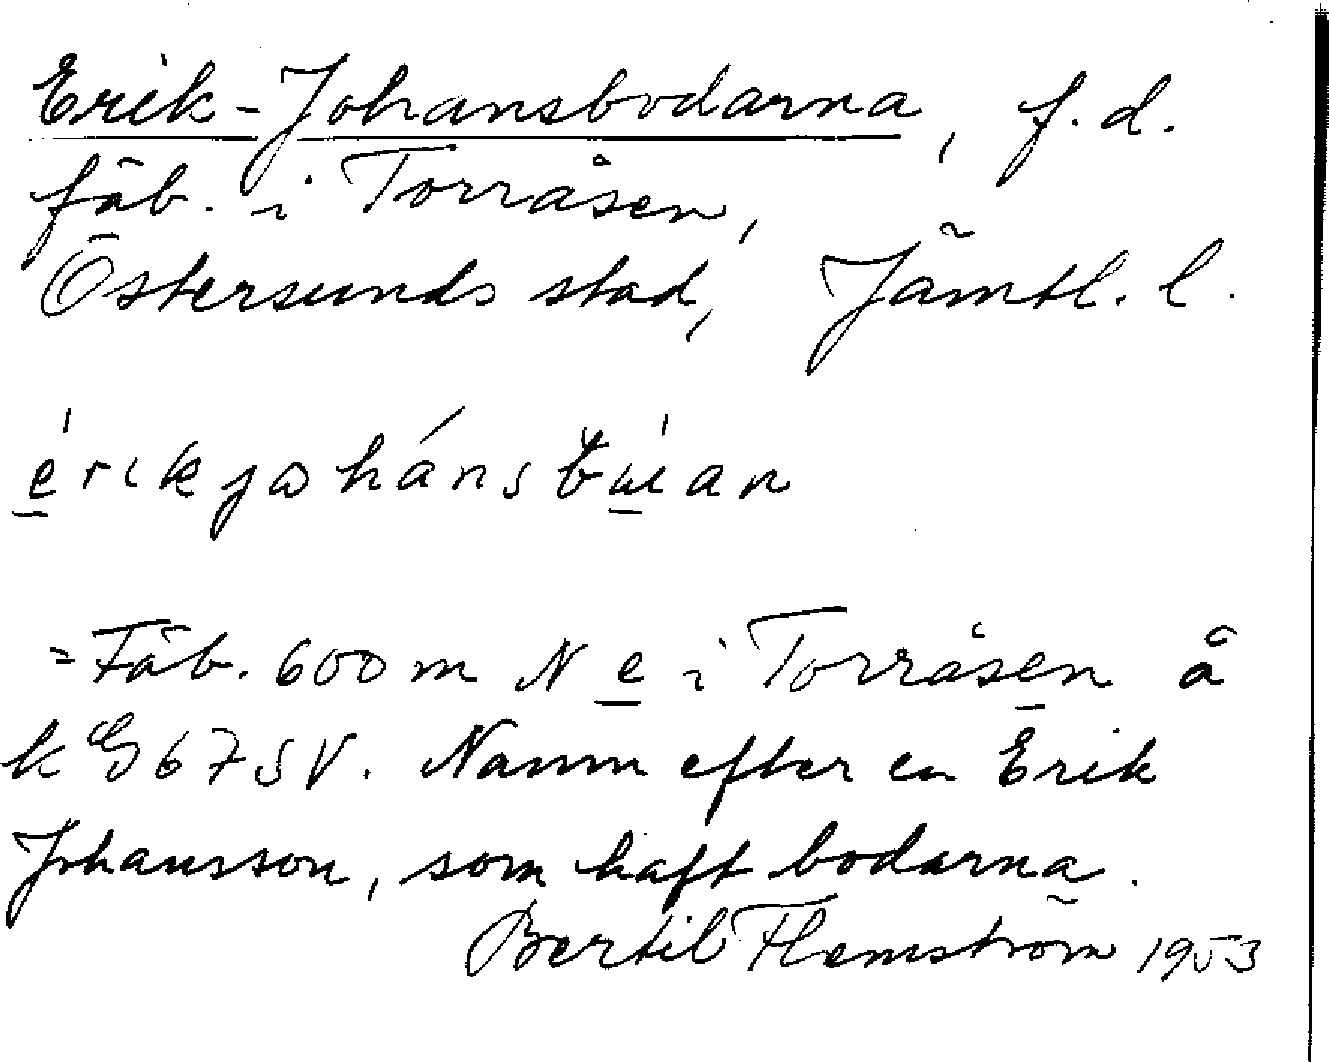 Erik-Johansbodarna, f.d.
fäb. i Torråsen,
Östersunds stad, Jämtl. l.
= Fäb. 600 m N e i Torråsen å
k G 67 SV. Namn efter en Erik
Johansson, som haft bodarna.
Bertil Flemström 1953